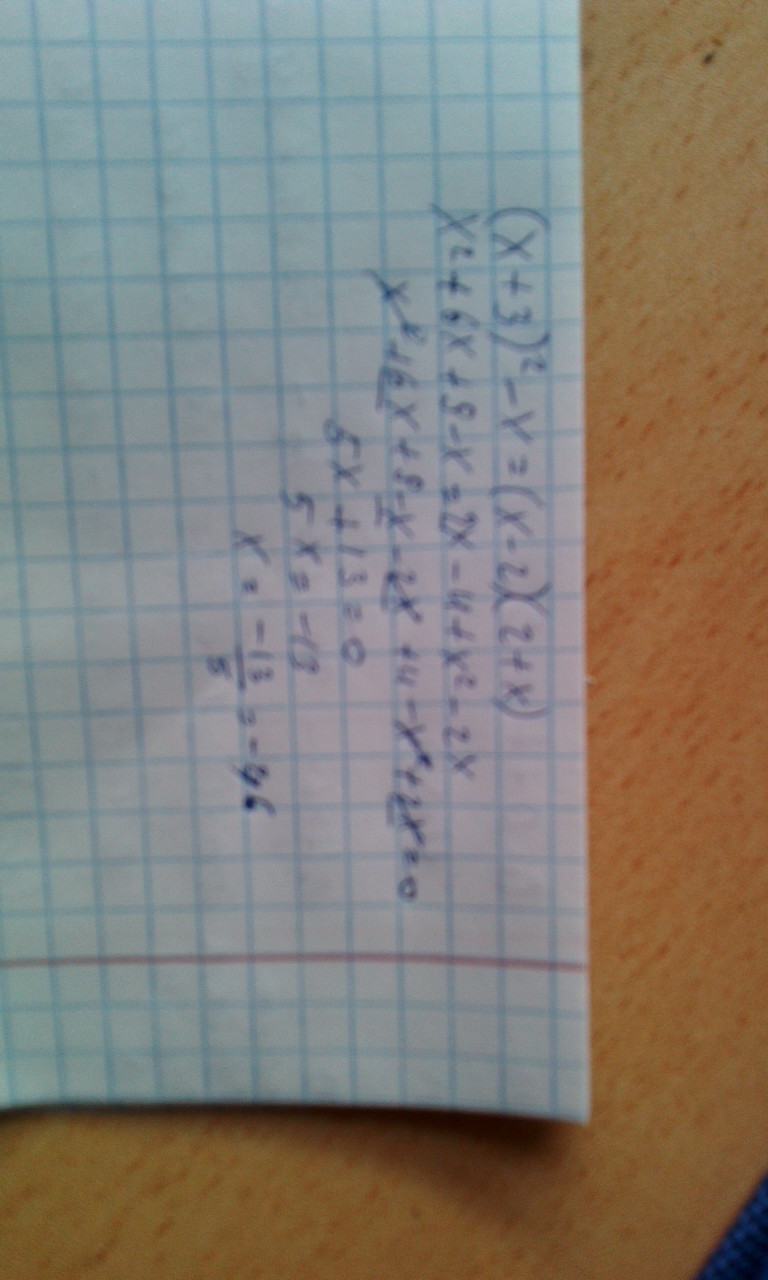 (x+3)²-x=(x-2)(2+x)
x²+6x+9-x=2x-4+x²-2x
x²+6x+9-x-2x+4-x²+2x=0
5x+13=0
5x=-13
x=-13/5=-2,6